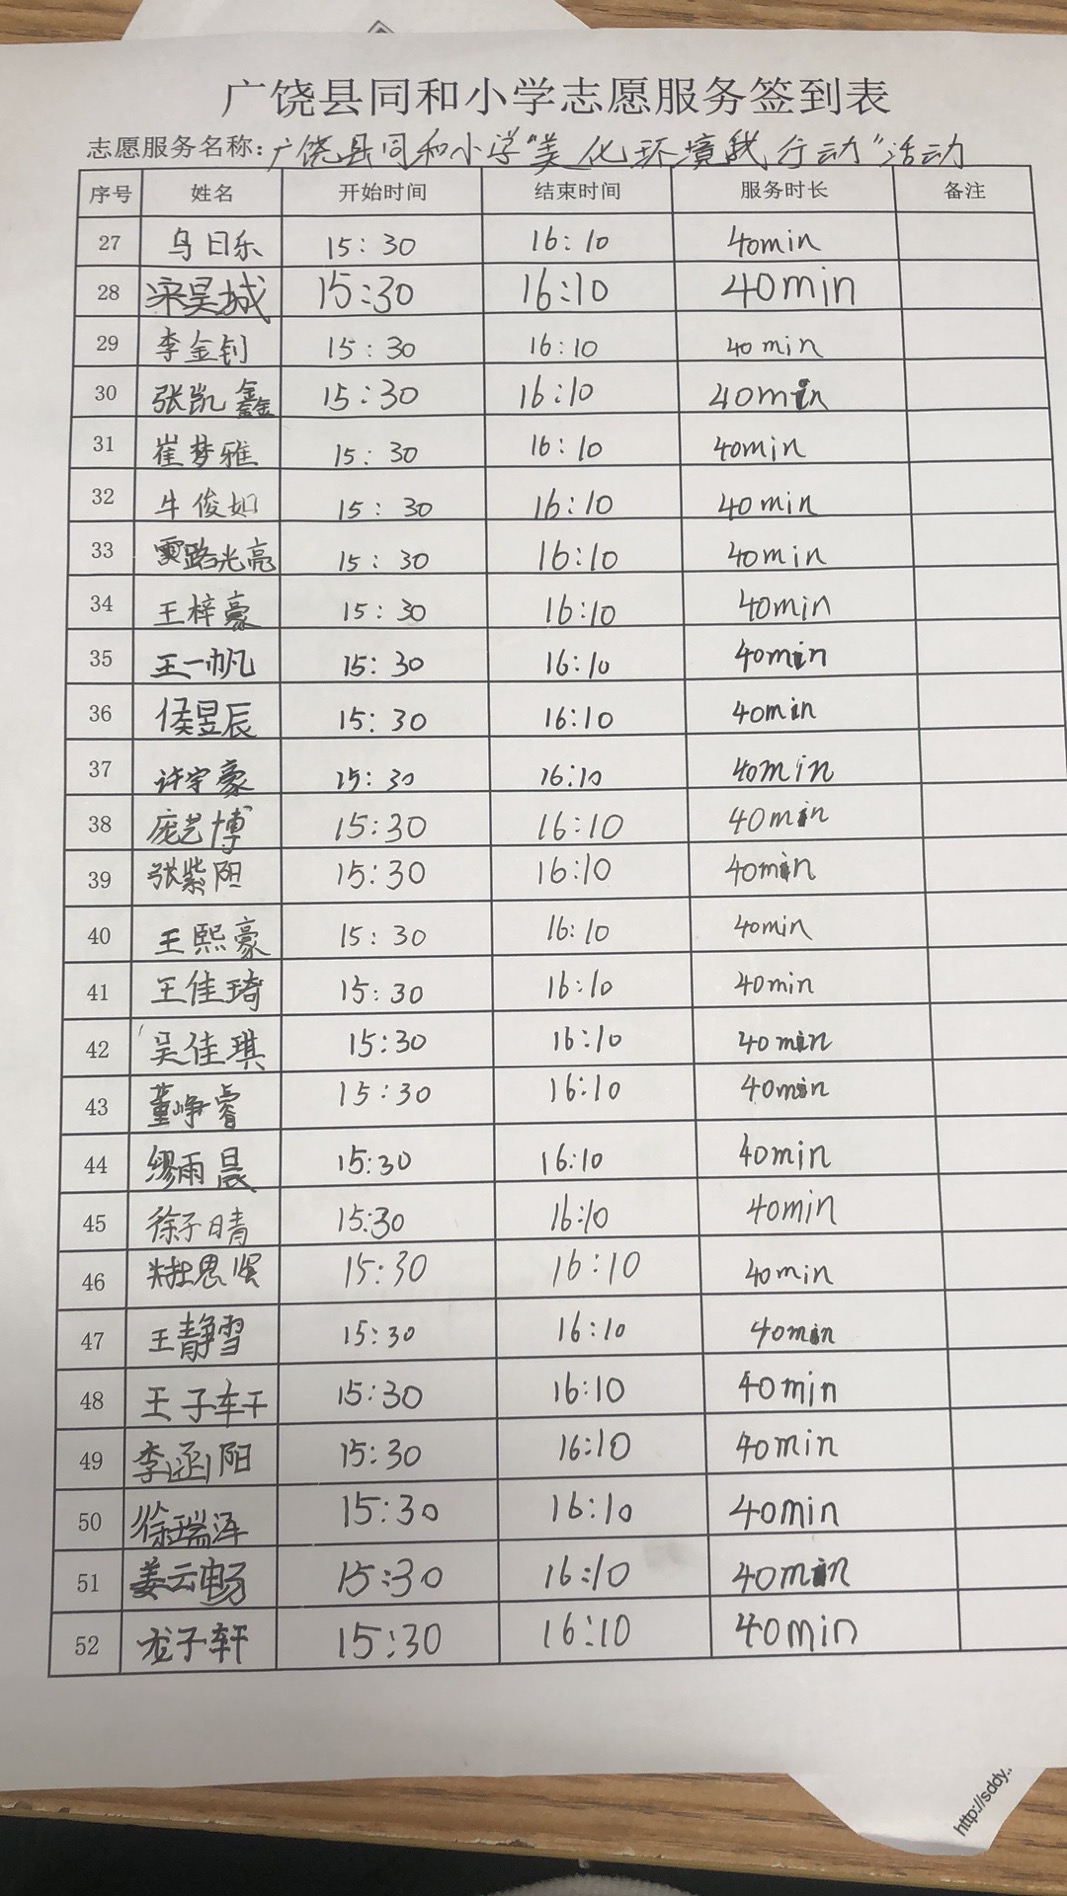 广饶县同和小学志愿服务签到表
志愿服务名称：广饶县同和小学“美化环境我行动”活动
序号 姓名 开始时间 结束时间 服务时长 备注
27 乌日乐 15:30 16:10 40min
28 梁昊城 15:30 16:10 40min
29 李金钊 15:30 16:10 40min
30 张凯鑫 15:30 16:10 40min
31 崔梦雅 15:30 16:10 40min
32 牛俊如 15:30 16:10 40min
33 路光亮 15:30 16:10 40min
34 王梓豪 15:30 16:10 40min
35 王一帆 15:30 16:10 40min
36 侯昱辰 15:30 16:10 40min
37 许宇豪 15:30 16:10 40min
38 庞艺博 15:30 16:10 40min
39 张紫阳 15:30 16:10 40min
40 王熙豪 15:30 16:10 40min
41 王佳琦 15:30 16:10 40min
42 吴佳琪 15:30 16:10 40min
43 董峥睿 15:30 16:10 40min
44 缪雨晨 15:30 16:10 40min
45 徐子晴 15:30 16:10 40min
46 思贤 15:30 16:10 40min
47 王静雪 15:30 16:10 40min
48 王子轩 15:30 16:10 40min
49 李函阳 15:30 16:10 40min
50 徐瑞泽 15:30 16:10 40min
51 姜云畅 15:30 16:10 40min
52 子轩 15:30 16:10 40min
http://sddy.